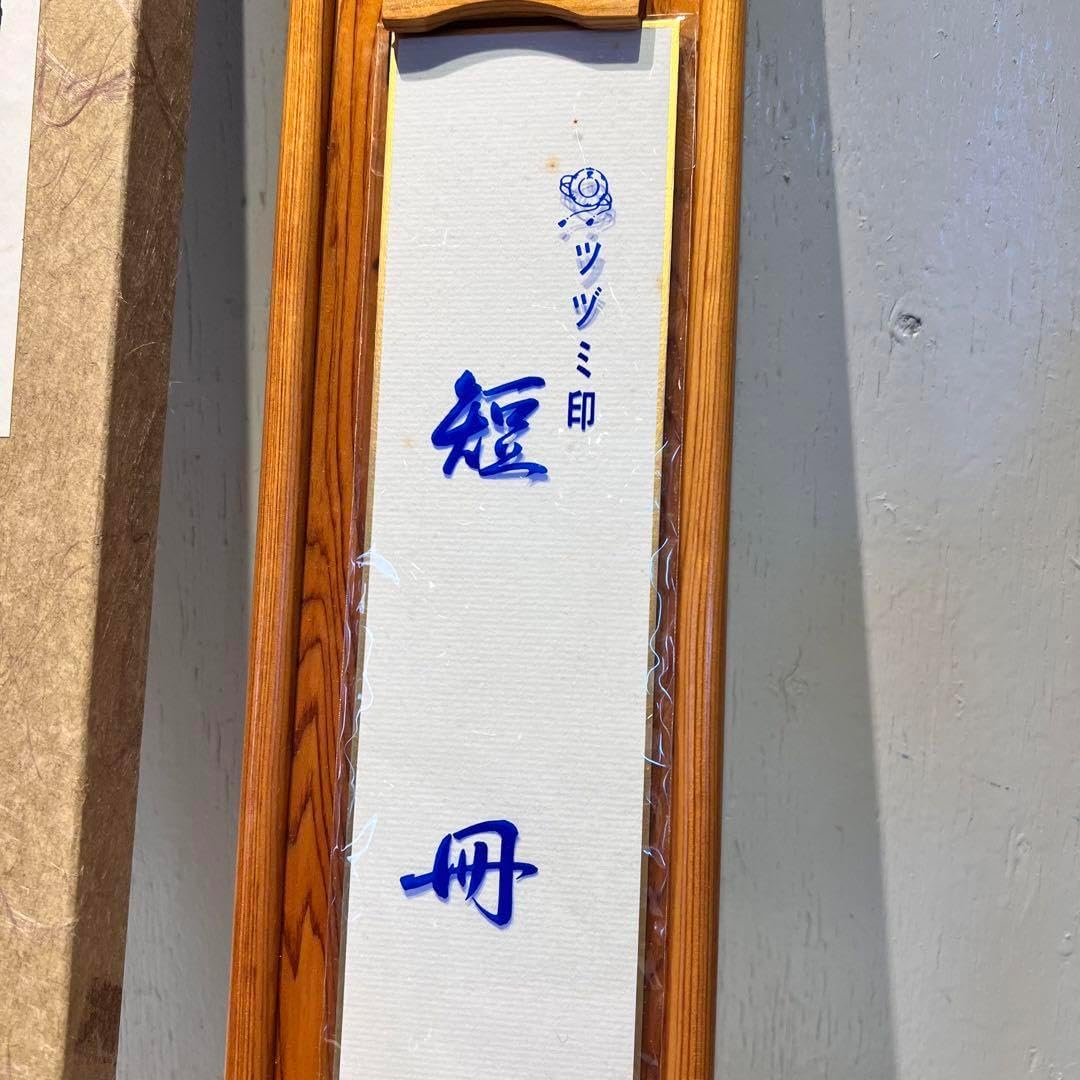 ツヅミ印
短冊